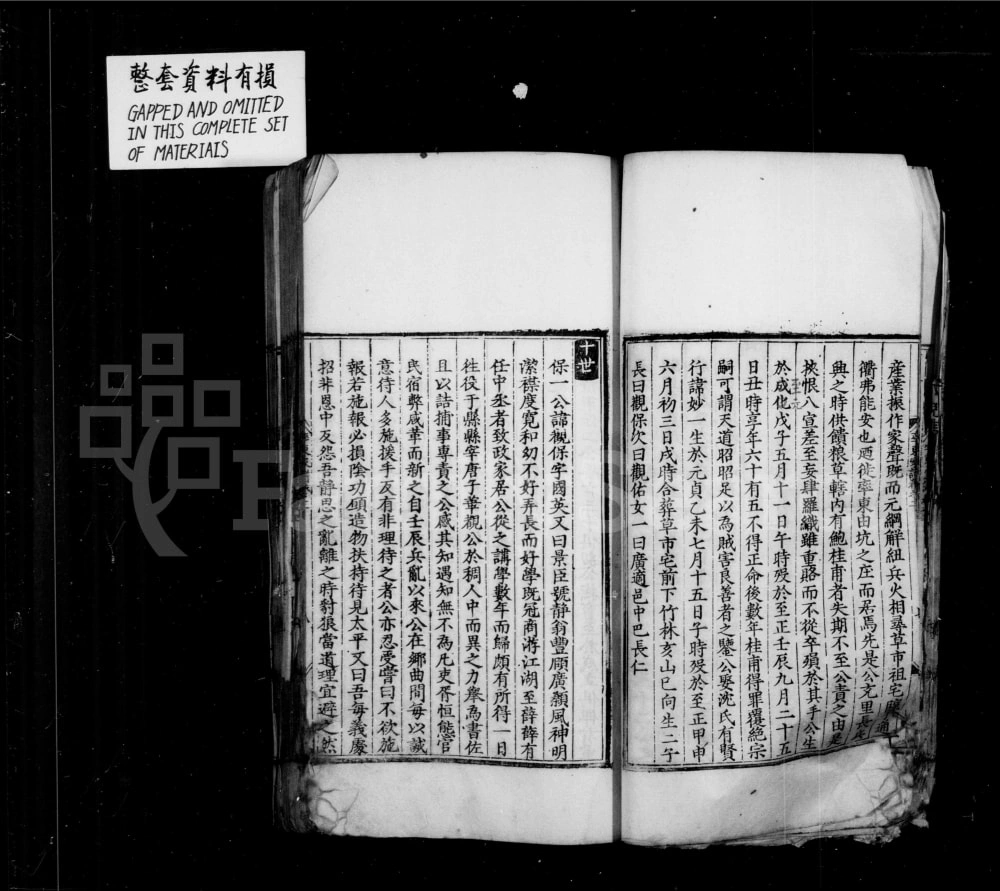 整套資料有損
GAPPED AND OMITTED
IN THIS COMPLETE SET
OF MATERIALS
產業振作家聲既而元綱解紐兵火相尋草市祖宅
衢弗能安也廼徙率東由坑之庄而居焉先是公充里長
興之時供饋粮草轄內有鮑桂甫者失期不至公責之由是
挾恨八宣差至妄肆羅織雖重賂而不從卒殞於其手公生
於成化戊子五月十一日午時歿於至正壬辰九月二十五
日丑時享年六十有五不得正命後數年桂甫得罪覆絕宗
嗣可謂天道昭昭足以為賊害良善者之鑒公娶沈氏有賢
行諱妙一生於元貞乙未七月十五日子時歿於至正甲申
六月初三日戌時合葬草市宅前下竹林亥山巳向生二子
長曰觀保次曰觀佑女一曰廣適邑中巴長仁
十世
保一公諱觀保字國英又曰景臣號静翁豐頤廣顙風神明
潔襟度寬和幼不好弄長而好學既冠商游江湖至薛薛有
任中丞者致政家居公從之講學數年而歸頗有所得一日
徃役于縣縣宰唐子華覩公於稠人中而異之力舉為書佐
且以詰捕事專責之公感其知遇知無不為凡吏胥恒能官
民宿弊咸革而新之自壬辰兵亂以來公在鄉曲間每以誠
意待人多施援手友有非理待之者公亦忍受嘗曰不欲施
報若施報必損陰功頭造物扶持待見太平又曰吾每義處
招非恩中反怨吾静思之亂離之時豺狼當道理宜避之然